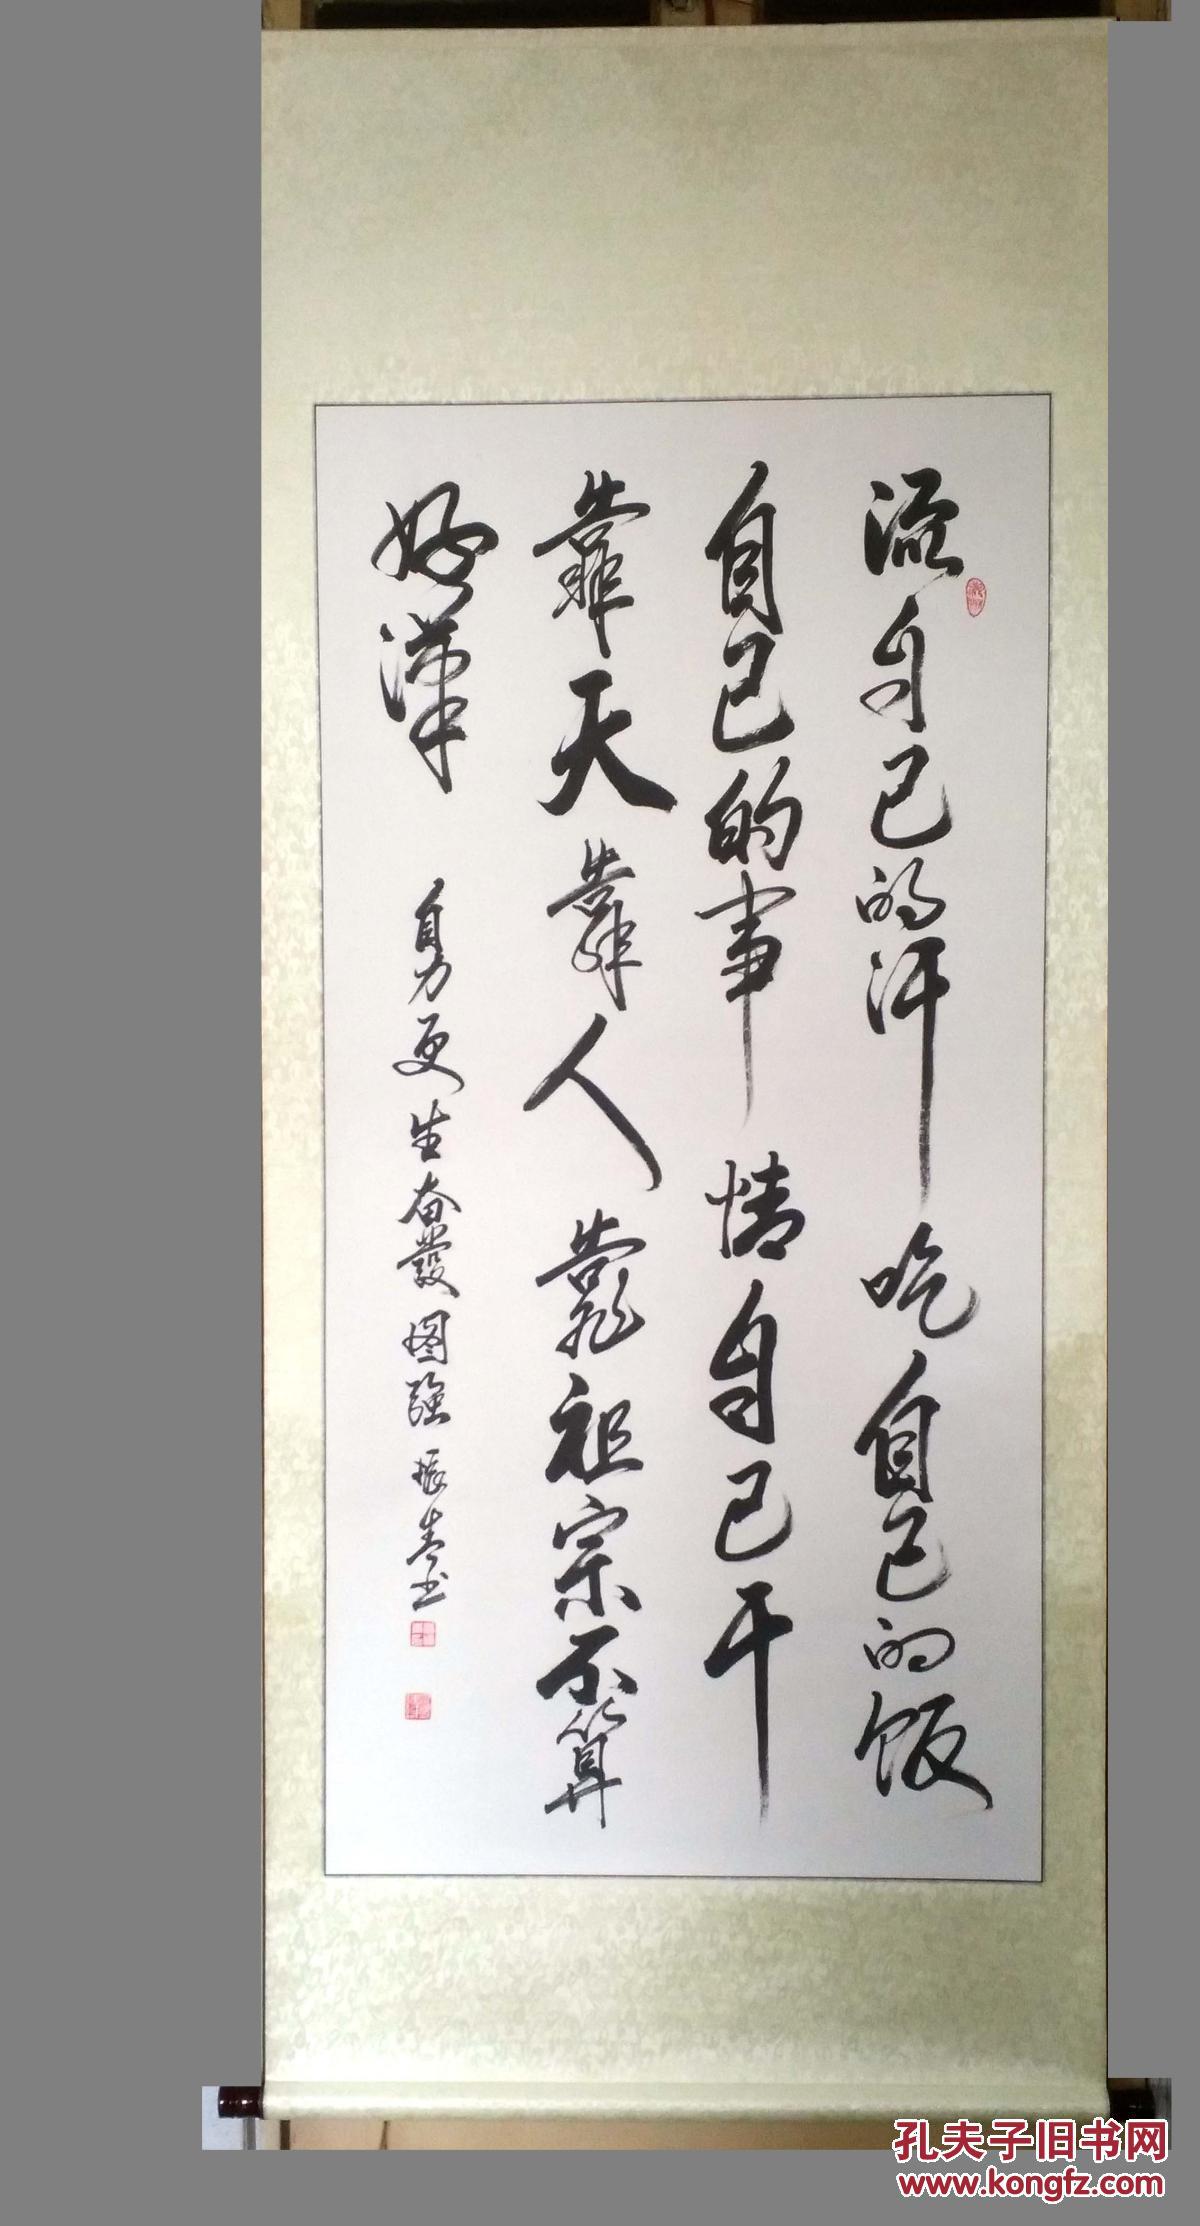 流自己的汗吃自己的饭
自己的事情自己干
靠天靠人靠祖宗不算
好汉
自力更生奋发图强 振春书
孔夫子旧书网
www.kongfz.com